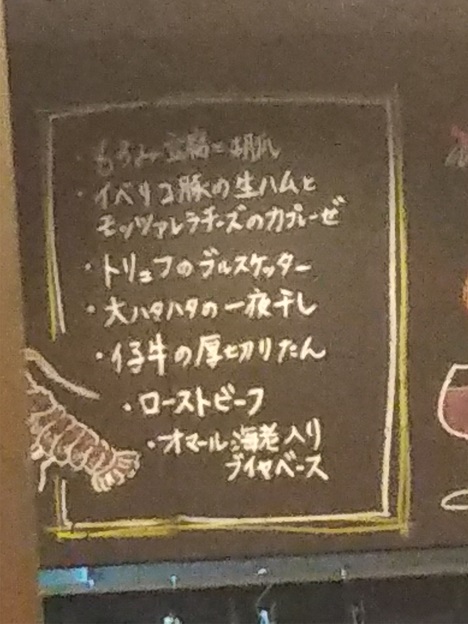 ・もろみ豆腐と胡瓜
・イベリコ豚の生ハムと
モッツァレラチーズのカプレーゼ
・トリュフのブルスケッター
・大ハタハタの一夜干し
・仔牛の厚切りたん
・ローストビーフ
・オマール海老入り
ブイヤベース